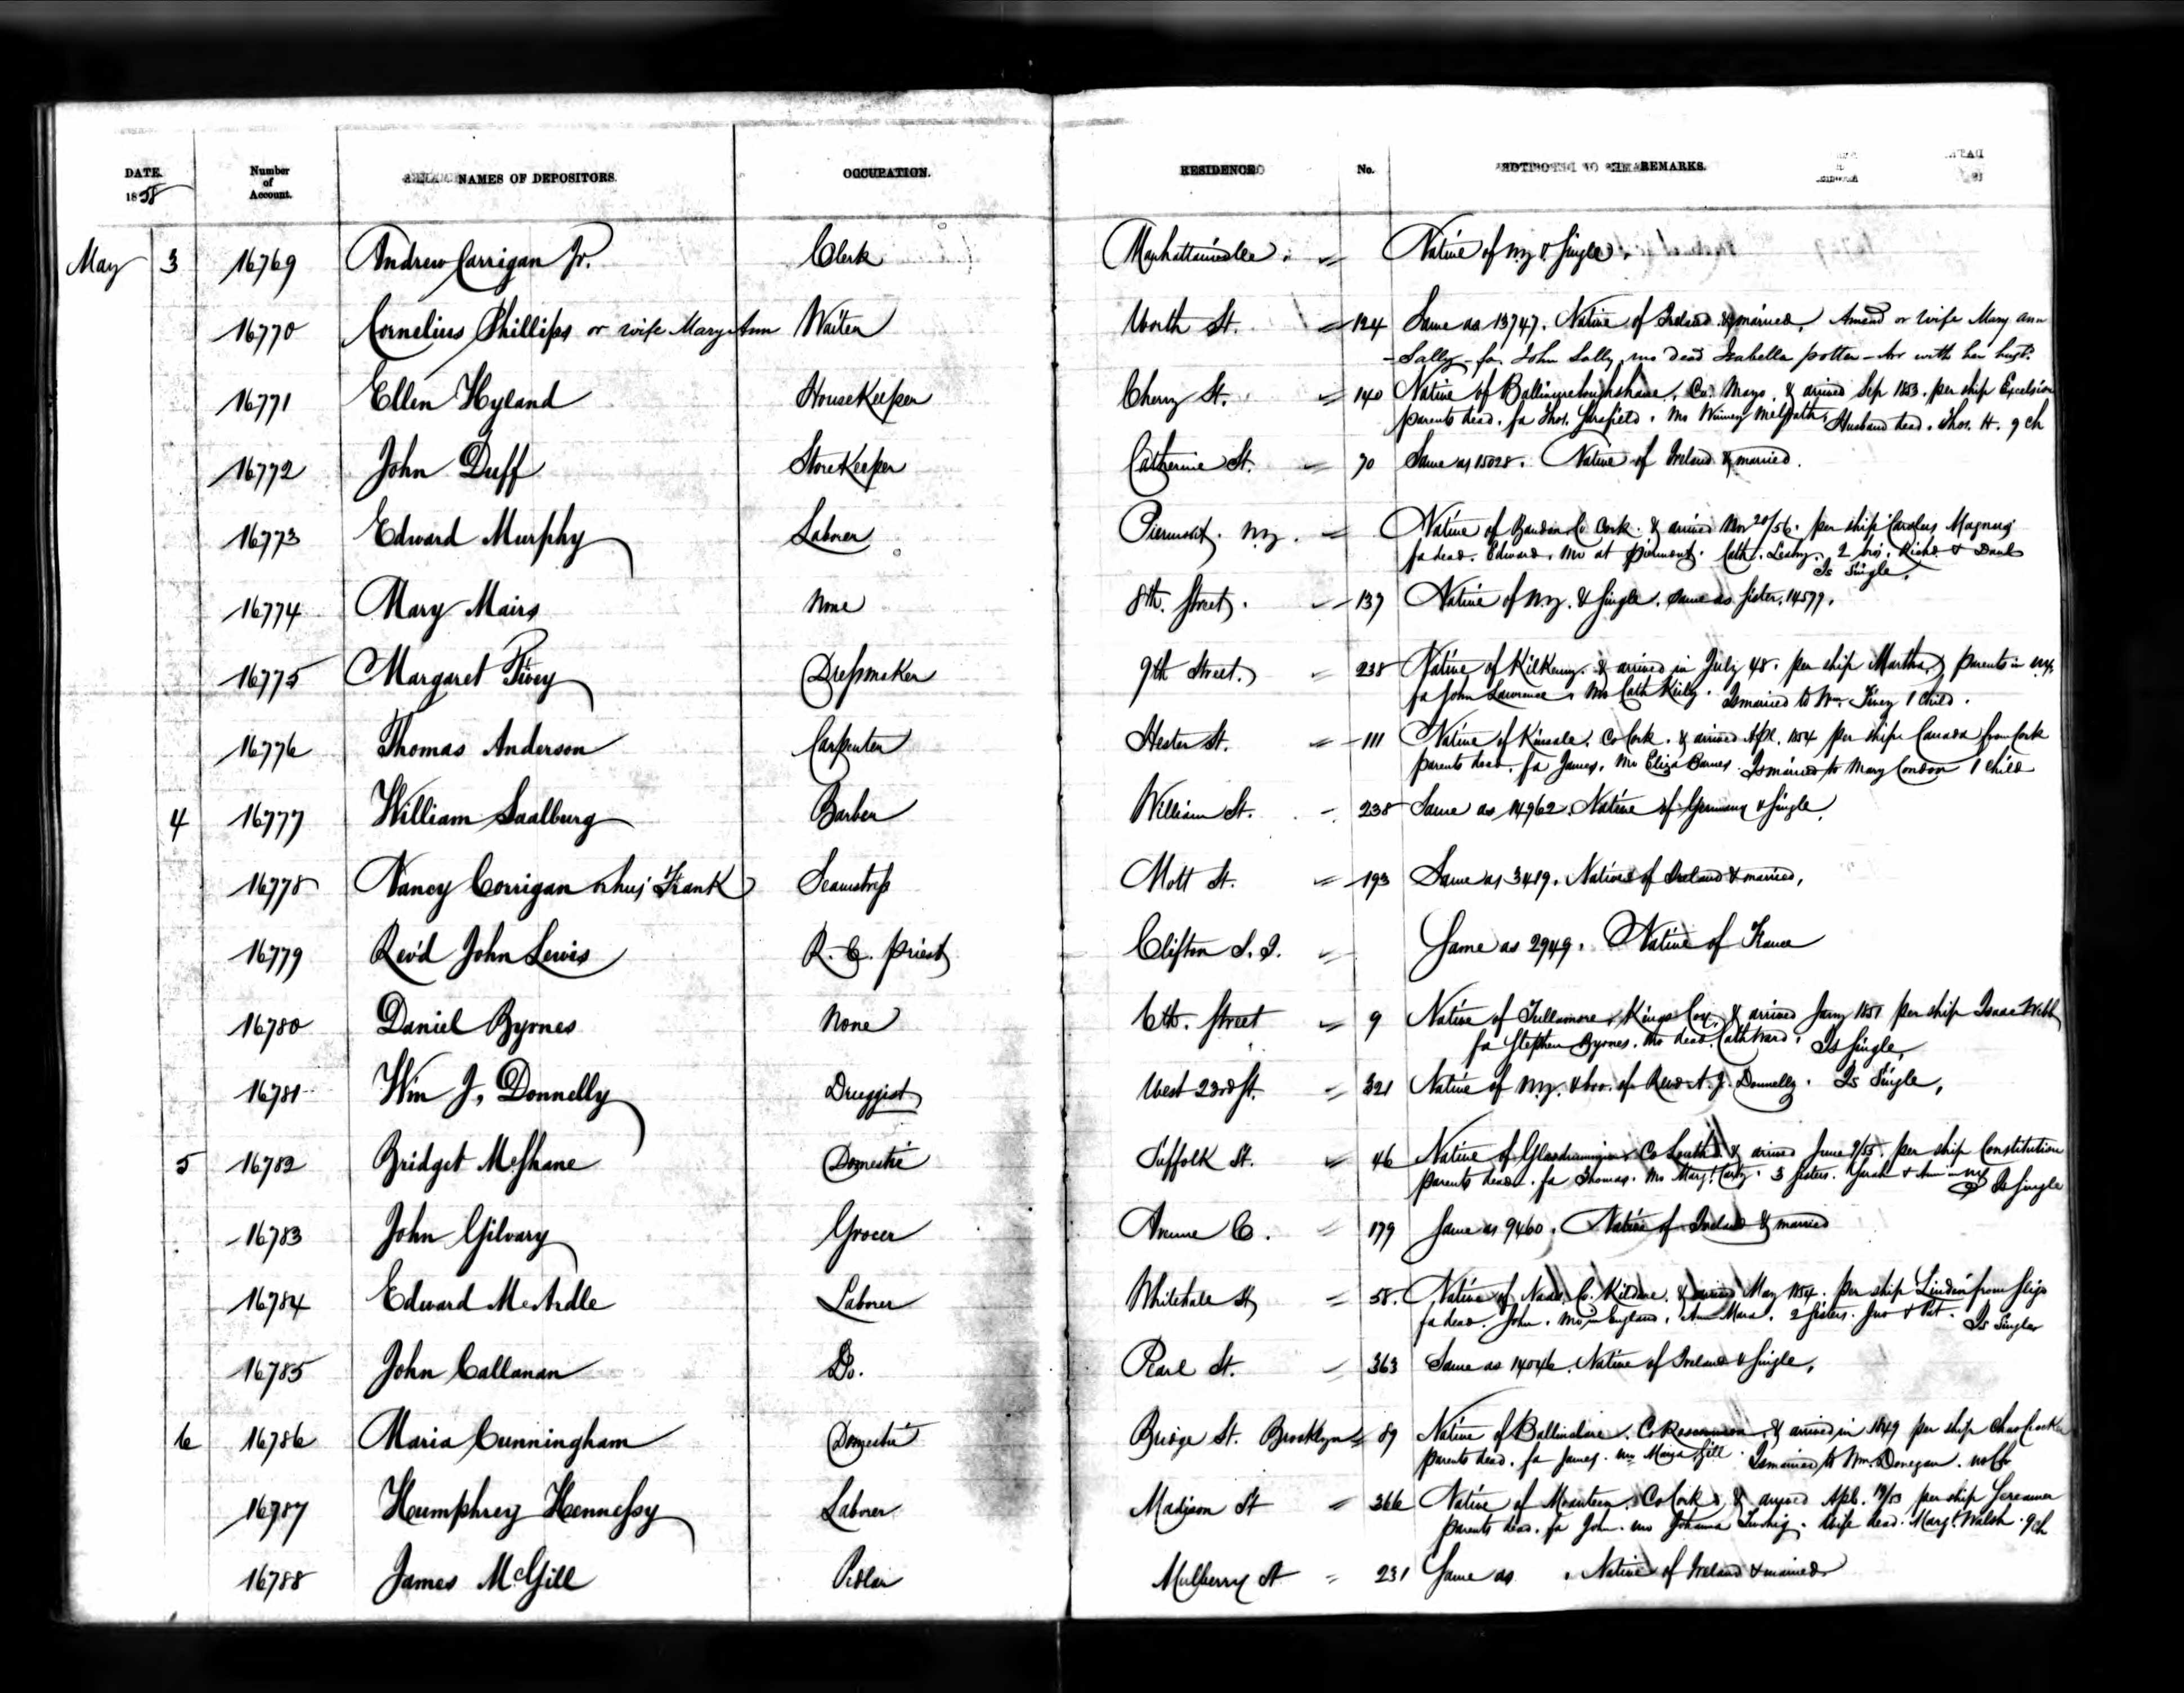 DATE. Number of Account. NAMES OF DEPOSITORS. OCCUPATION. RESIDENCE No. REMARKS.
1858
May 3 16769 Andrew Carrigan Jr. Clerk Manhattanville Native of N.Y. & Single.
16770 Cornelius Phillips or wife Mary Ann Waiter Worth St. 124 Same as 13747. Native of Ireland & married. Amend or wife Mary Ann
- Sally - fa. John Sally, mo dead Isabella potter - Arr with her husb.
16771 Ellen Hyland HouseKeeper Cherry St. 140 Native of Co. Mayo. & arrived Sep 1853. per ship Excelsior
parents dead. fa Thos. Mo Winney Husband dead. Thos. H. 9 ch
16772 John Duff StoreKeeper Catherine St. 70 Same as 15028. Native of Ireland & married.
16773 Edward Murphy Laborer Piermont. N.Y. Native of Bandon Co Cork. & arrived Nov 20/56. per ship Carolus Magnus
fa dead. Edward. Mo at piermont. Cath. Leahy. 2 bros. Richd & Danl
Is Single.
16774 Mary Mairs None 8th. Street. 137 Native of N.Y. & Single. Same as Sister. 14577.
16775 Margaret Tivey Dressmaker 9th Street. 238 Native of Kilkenny. & arrived in July 48. per ship Martha, parents in N.Y.
fa John Lawrence. Mo Cath Kiely. Is married to Wm. Tivey 1 Child.
16776 Thomas Anderson Carpenter Hester St. 111 Native of Kinsale. Co Cork. & arrived Apl. 1854 per ship Canada from Cork
parents dead. fa James. Mo Eliza Barnes. Is married to Mary Condon 1 Child
4 16777 William Saalburg Barber William St. 238 Same as 14962. Native of Germany & Single.
16778 Nancy Corrigan or hus' Frank Seamstress Mott St. 193 Same as 3419. Native of Ireland & married.
16779 Rev'd John Lewis R. C. priest Clifton S. I. Same as 2949. Native of France
16780 Daniel Byrnes None 6th. Street 9 Native of Tullamore, Kings Coy, & arrived Jany 1851 per ship Isaac Webb
fa Stephen Byrnes. Mo dead. Cath Ward. Is Single.
16781 Wm J. Donnelly Druggist West 23rd St. 321 Native of N.Y. & bro. of Revd A. J. Donnelly. Is Single.
5 16782 Bridget McShane Domestic Suffolk St. 46 Native of Co Louth & arrived June 9/55. per ship Constitution
parents dead. fa Thomas. Mo Margt. 3 sisters. Sarah & Ann in NY Is Single
16783 John Gilvary Grocer Avenue C. 179 Same as 9460. Native of Ireland & married
16784 Edward McArdle Laborer Whitehall St 58. Native of Naas. Co. Kildare. & arrived May 1854. per ship Linden from Sligo
fa dead. John. Mo in England. Ann Mara. 2 Sisters. Jno & Pat. Is Single
16785 John Callanan Do. Pearl St. 363 Same as 14046. Native of Ireland & Single.
6 16786 Maria Cunningham Domestic Bridge St. Brooklyn 89 Native of Co Roscommon. & arrived in 1849 per ship Chas Crocker
parents dead. fa James. mo Maria Gill. Is married to Wm. Donegan. no Ch
16787 Humphrey Hennessy Laborer Madison St 366 Native of Co Cork, & arrived Apl. 19/53 per ship
parents dead. fa John. mo Johanna Twohig. Wife dead. Margt. Walsh. 9 ch
16788 James McGill Pedlar Mulberry St 231 Same as . Native of Ireland & married